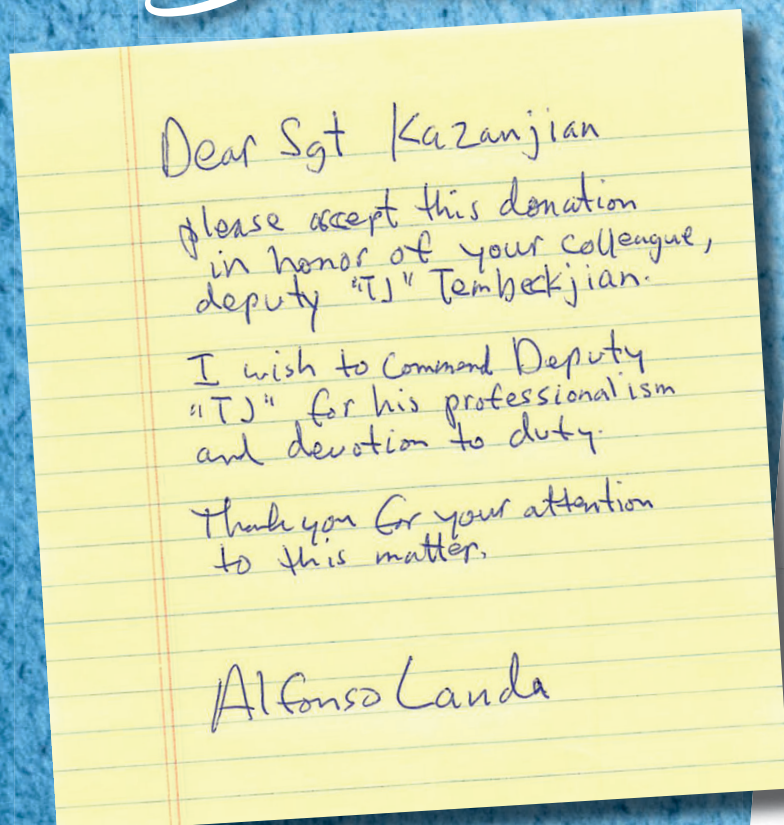 Dear Sgt Kazanjian
please accept this donation
in honor of your colleague,
deputy "TJ" Tembeckjian.
I wish to Commend Deputy
"TJ" for his professionalism
and devotion to duty.
Thank you for your attention
to this matter.
Alfonso Landa